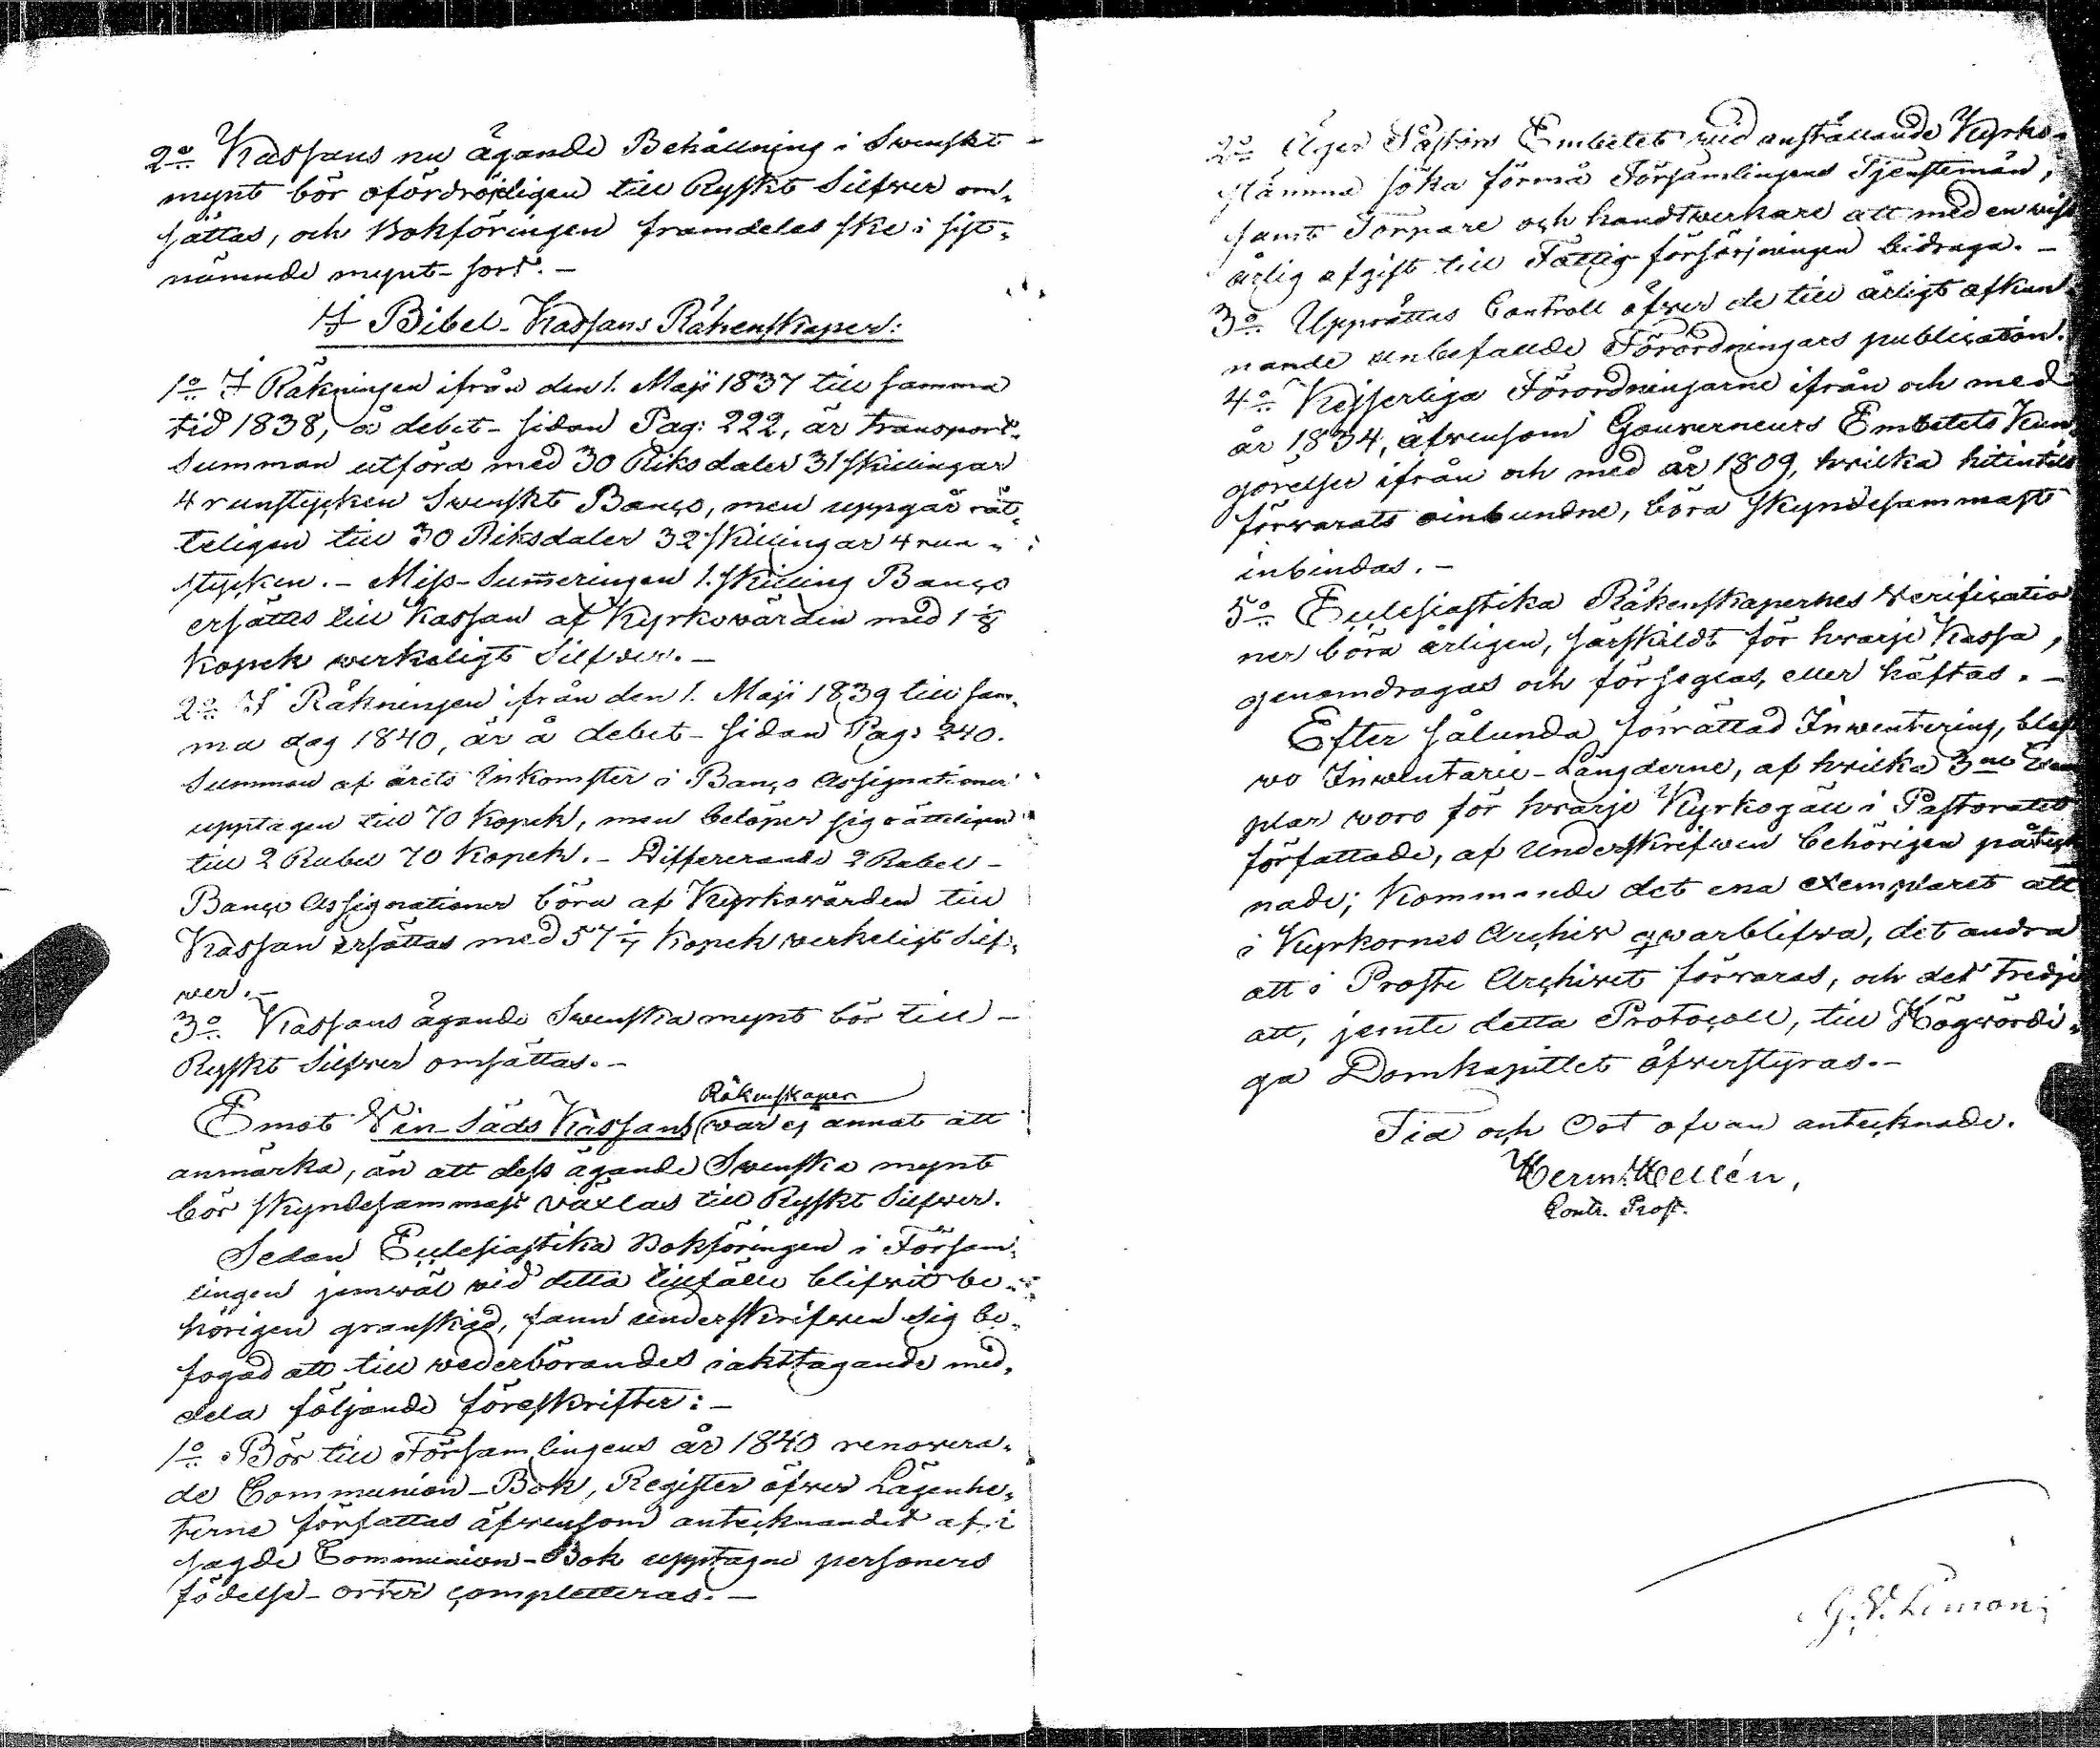 2:o Kassans nu ägande Behållning i Swenskt
mynt bör ofördröjeligen till Ryskt Silfwer om„
sättas, och Bokföringen framdeles ske i sist„
nämnde mynt-sort. –
I Bibel-Kassans Räkenskaper:
1:o I Räkningen ifrån den 1. Maji 1837 till samma
tid 1838, å debet-sidan Pag: 222, är transport„
Summan utförd med 30 Riksdaler 31 skillingar
4 runstycken Swenskt Banço, men uppgår rät„
teligen till 30 Riksdaler 32 skillingar 4 run„
stycken. – Miss-Sum̄eringen 1. skilling Banço
ersättes till Kassan af Kyrkowärden med 1 1/8
Kopek werkeligt Silfwer. –
2:o I Räkningen ifrån den 1. Maji 1839 till sam„
ma dag 1840, är å debet-sidan Pag: 240.
Summan af årets Inkomster i Banço Assignationer
upptagen till 70 Kopek, men belöper sig rätteligen
till 2 Rubel 70 Kopek. – Differerande 2 Rubel –
Banço Assignationer böra af Kyrkowärden till
Kassan ersättas med 57 1/7 Kopek werkeligt Silf„
wer. –
3:o Kassans ägande Swenska mynt bör till –
Ryskt Silfwer omsättas. –
Räkenskaper
Emot Vin-Säds Kassans war ej annat att
anmärka, än att dess ägande Swenska mynt
bör skyndesammast växlas till Ryskt Silfwer.
Sedan Ecclesiastika Bokföringen i Försam„
lingen jemwäl wid detta tillfälle blifwit be„
hörigen granskad, fann underskrifwen sig be„
fogad att till wederbörandes iakttagande med„
dela följande föreskrifter: –
1:o Bör till Församlingens år 1840 renovera„
de Communion-Bok, Register öfwer Lägenhe„
terne författas äfwensom antecknandet af i
sagde Communion-Bok upptagne personers
födelse-orter completteras. –
2:o Äger Pastors Embetet wid anstäl̄ande Kyrko„
stämma söka förmå Församlingens Tjenstemän,
samt Torpare och handtwerkare att med en wiss
årlig afgift till Fattig-försörjningen bidraga. –
3:o Upprättas Controll öfwer de till årligt afkun„
nande anbefallde Förordningars publication.
4:o Kejserliga Förordningarne ifrån och med
år 1834, äfwensom Gouverneurs Embetets Kun„
görelser ifrån och med år 1809, hwilka hitintills
förwarats oinbundne, böra skyndesammast
inbindas. –
5:o Ecclesiastika Räkenskapernes verificatio
ner böra årligen, särskildt för hwarje Kassa,
genomdragas och förseglas, eller häftas. –
Efter sålunda förrättad Inwentering, blef
wo Inwentarie-Längderne, af hwilka 3:ne Exem
plar woro för hwarje Kyrkogäll i Pastoratet
författade, af Underskrifwen behörigen påteck
nade; Kommande det ena exemplaret att
i Kyrkornes Archiv qwarblifwa, det andra
att i Prosте Archivet förwaras, och det tredje
att, jemte detta Protocoll, till Högwördi„
ga Domkapitlet öfwerstyras. –
Tid och Ort ofvan antecknade.
Herm: Hellén,
Contr. Prost.